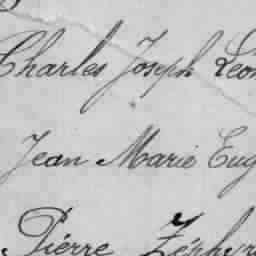 Charles Joseph Léon
Jean Marie Eug
Pierre Zéphyr